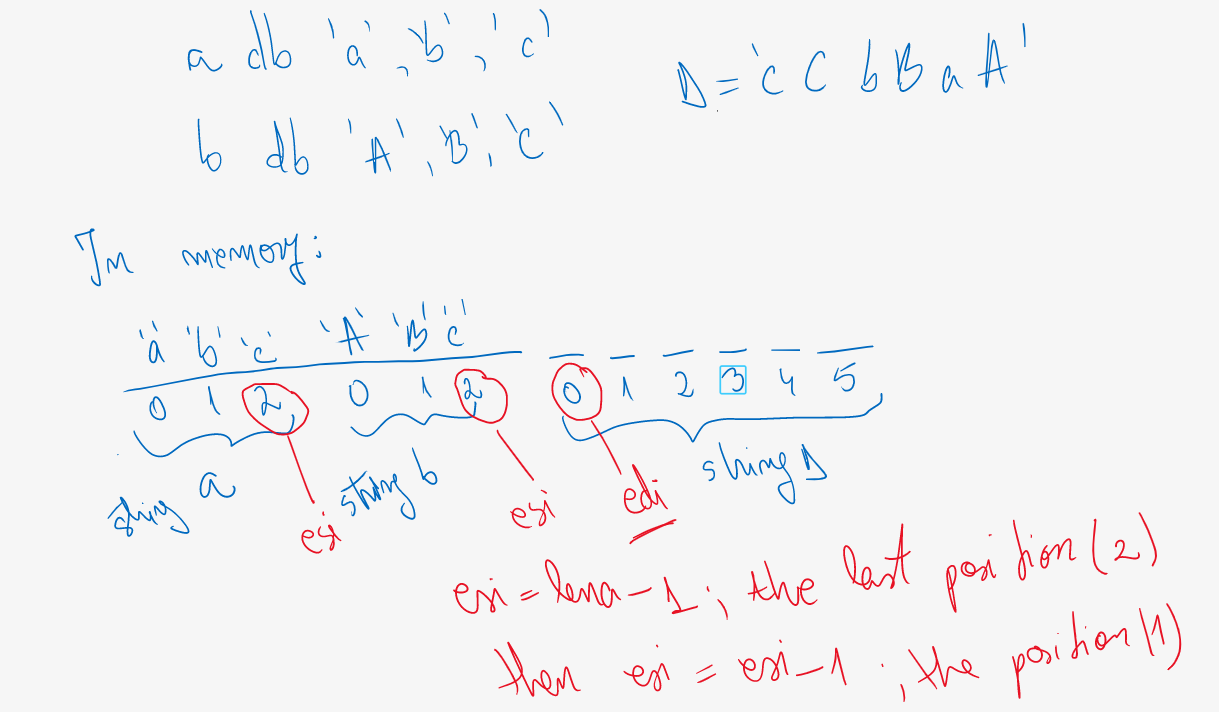 a db 'a', 'b', 'c'
D = 'c C b B a A'
b db 'A', 'B', 'C'
In memory:
'a' 'b' 'c' 'A' 'B' 'C'
0 1 2 0 1 2 0 1 2 3 4 5
string a string b string D
esi esi edi
esi = lena - 1 ; the last position (2)
then esi = esi - 1 ; the position (1)